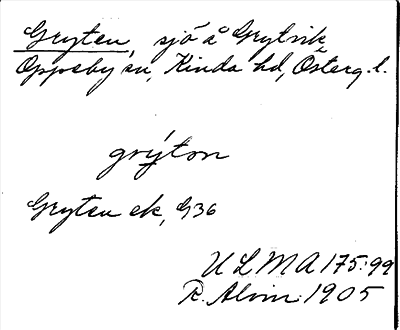 Gryten, sjö å Grytvik
Oppeby sn, Kinda hd, Österg. l.
grýton
Gryten ek, G36
ULMA 175:99
R. Alvin. 1905